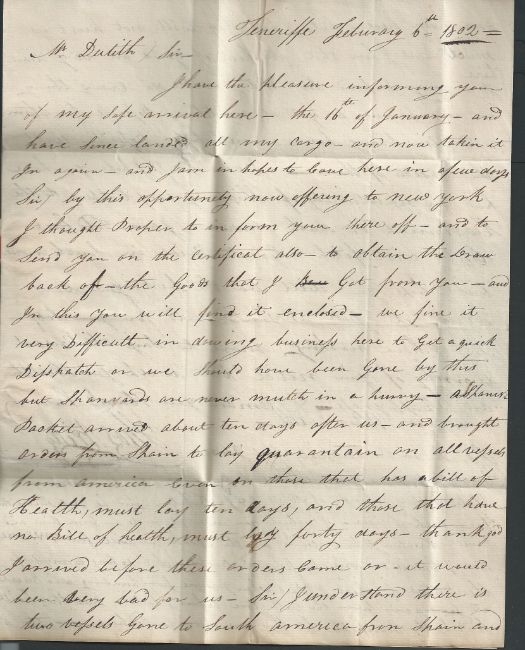 Teneriffe Feburary 6th = 1802 =
Mr Dutith / Sir —
I have the pleasure informing you
of my safe arrival here — the 16th of January — and
have since landed all my cargo — and now taken it
In again — and I am in hopes to leave here in afew days
Sir, by this opportunity now offering to new york
I thought Proper to in form your there off — and to
Send you on the certificat also — to obtain the Draw
back of — the Goods that I Got from you — and
In this you will find it enclosed — we fine it
very Difficult in doeing business here to Get a quick
Disspatch or we should have been Gone by this
but Spanyards are never mutch in a hurry — a Spanis
Packet arrived about ten days after us — and brought
orders from Spain to lay quarantain on all vessels
from america Even on those that has a bill of
Health, must lay ten days, and those that have
no Bill of health, must lay forty days — thank god
I arrived before these orders Came or — it would
been very bad for us — Sir / I understand there is
two vessels Gone to South america from Spain and